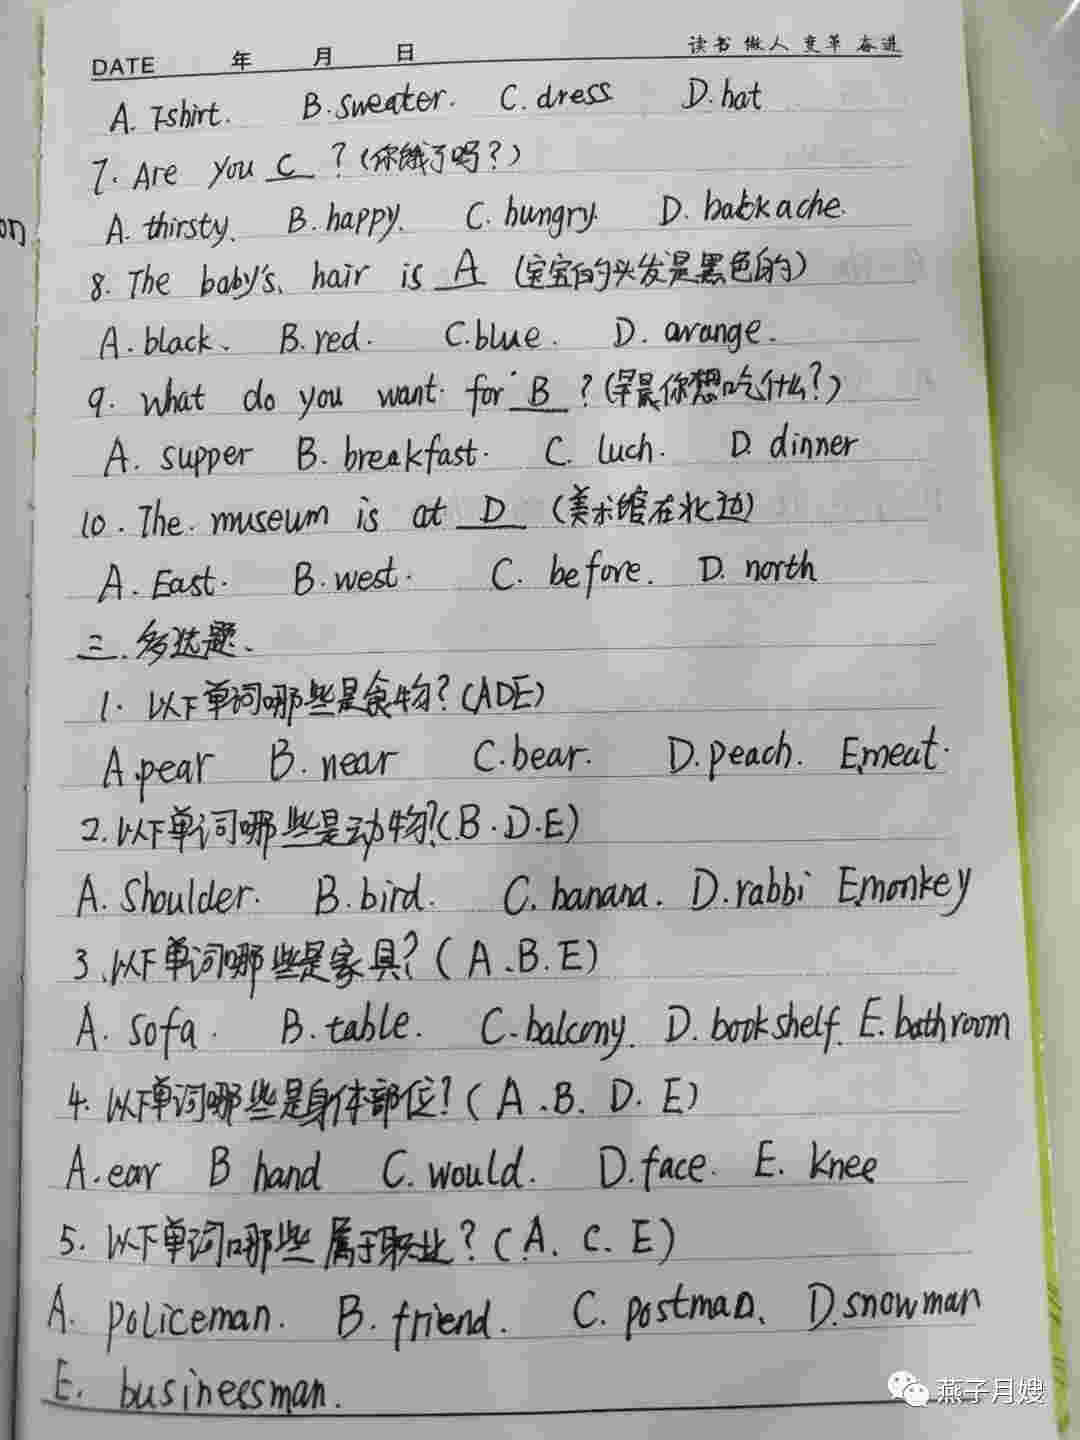 DATE 年 月 日 读书 做人 变革 奋进
A. T-shirt. B. sweater. C. dress D. hat
7. Are you C ? (你饿了吗?)
on
A. thirsty. B. happy. C. hungry. D. backache.
8. The baby's. hair is A (宝宝的头发是黑色的)
A. black. B. red. C. blue. D. arange.
9. what do you want for B ? (早晨你想吃什么?)
A. supper B. breakfast. C. luch. D. dinner
10. The. museum is at D (美术馆在北边)
A. East. B. west. C. before. D. north
三. 多选题.
1. 以下单词哪些是食物? (ADE)
A. pear B. near C. bear. D. peach. E. meat.
2. 以下单词哪些是动物? (B. D. E)
A. Shoulder. B. bird. C. banana. D. rabbi E. monkey
3. 以下单词哪些是家具? (A. B. E)
A. Sofa. B. table. C. balcony. D. bookshelf. E. bathroom
4. 以下单词哪些是身体部位? (A. B. D. E)
A. ear B hand C. would. D. face. E. knee
5. 以下单词哪些属于职业? (A. C. E)
A. policeman. B. friend. C. postman. D. snowman
E. businessman.
燕子月嫂